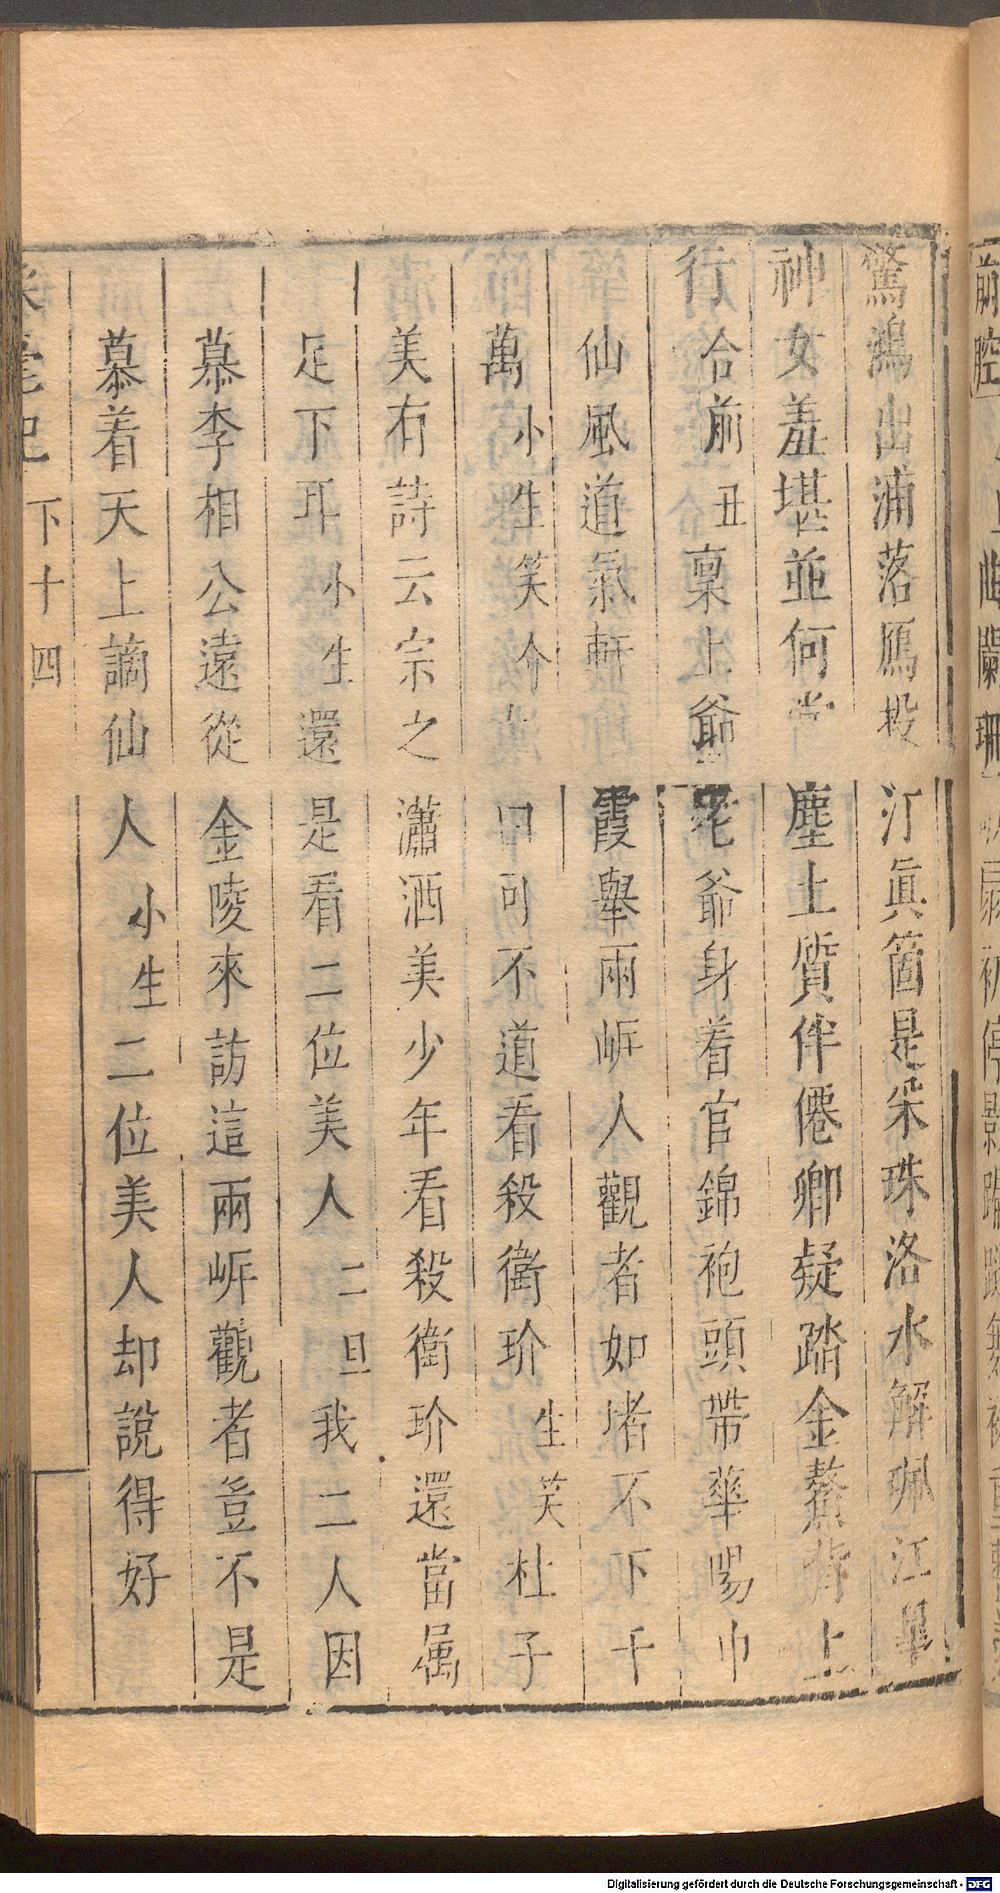 驚鴻出浦落鴈投汀眞箇是采珠洛水解珮江皐
神女羞堪並何當塵土質伴僊卿疑踏金鰲背上
行合前丑稟上爺老爺身着官錦袍頭帶華陽巾
仙風道氣軒霞舉兩岍人觀者如堵不下千
萬小生笑介曰可不道看殺衛玠生笑杜子
美有詩云宗之瀟洒美少年看殺衛玠還當属
足下耳小生還是看二位美人二旦我二人因
慕李相公遠從金陵來訪這兩岍觀者豈不是
慕着天上謫仙人小生二位美人却說得好
下十四
Digitalisierung gefördert durch die Deutsche Forschungsgemeinschaft - DFG